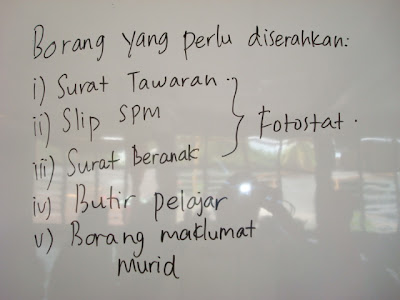 Borang yang perlu diserahkan:
i) Surat Tawaran.
ii) Slip SPM
Fotostat.
iii) Surat Beranak
iv) Butir pelajar
v) Borang maklumat
murid